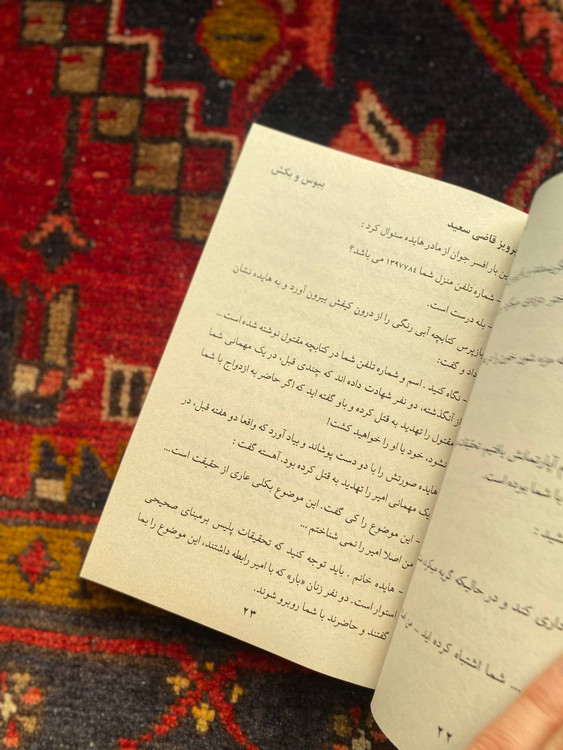 ببوس و بکش
پرویز قاضی سعید
این بار افسر جوان از مادر هایده سئوال کرد :
- شماره تلفن منزل شما ۱۳۹۷۷۸٤ می باشد؟
- بله درست است.
بازپرس کتابچه آبی رنگی را از درون کیفش بیرون آورد و به هایده نشان
داد و گفت:
- نگاه کنید . اسم و شماره تلفن شما در کتابچه مقتول نوشته شده است...
از آنگذشته، دو نفر شهادت داده اند که چندی قبل، در یک مهمانی شما
مقتول را تهدید به قتل کرده و باو گفته اید که اگر حاضر به ازدواج با شما
نشود، خود یا او را خواهید کشت!
هایده صورتش را با دو دست پوشاند و بیاد آورد که واقعا دو هفته قبل، در
یک مهمانی امیر را تهدید به قتل کرده بود. آهسته گفت :
- این موضوع را کی گفت. این موضوع بکلی عاری از حقیقت است...
من اصلا امیر را نمی شناختم ...
- هایده خانم . باید توجه کنید که تحقیقات پلیس برمبنای صحیحی
استوار است. دو نفر زنان «بار» که با امیر رابطه داشتند، این موضوع را بما
گفتند و حاضرند با شما روبرو شوند.
۲۳
با شما بوده است.
داری کند و در حالیکه گریه میکرد
... شما اشتباه کرده اید - من
۲۲